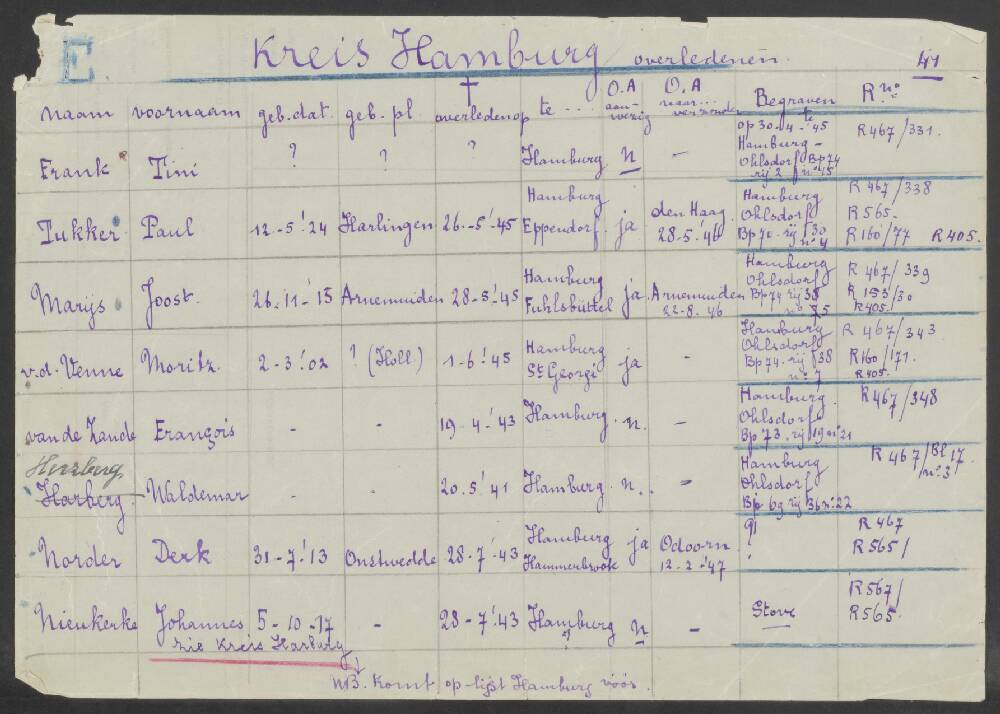 E Kreis Hamburg overledenen. 41
naam voornaam geb.dat. geb.pl. † overleden op te ... O.A aanwezig O.A naar... verzonden Begraven te R no.
Frank Tini ? ? ? Hamburg n - op 30-4-'45 R467/331.
Hamburg-
Ohlsdorf Bp74
rij 2 no 45
Tukker Paul 12-5-'24 Harlingen 26-5-'45 Hamburg ja den Haag Hamburg R467/338
Eppendorf. 28-5-'46 Ohlsdorf R565.
Bp74 rij 30 R160/77 R405.
no 4
Marijs Joost. 26-11-'15 Arnemuiden 28-5-'45 Hamburg ja. Arnemuiden Hamburg R467/339
Fuhlsbüttel 22-8-'46 Ohlsdorf R153/30
Bp74 rij 38 R405.
no 75
v.d. Venne Moritz. 2-3-'02 ? (Holl.) 1-6-'45 Hamburg ja - Hamburg R467/343
St Georg Ohlsdorf R160/171.
Bp74. rij 38 R405.
no 7
van de Zande François - - 19-4-'43 Hamburg. n. - Hamburg R467/348
Ohlsdorf
Bp 73. rij 19 no 21
Herzberg.
Harberg Waldemar - - 20.5'41 Hamburg. n. - Hamburg R467/Bl17
Ohlsdorf no 3
Bp 69 rij 36 no 22
Norder Derk 31-7-'13 Onstwedde 28-7-'43 Hamburg ja Odoorn ? R467
Hammerbrook 12-2-'47 ? R565/
Nieukerke Johannes 5-10-17 - 28-7-'43 Hamburg n - R567/
? R565.
zie Kreis Harburg
NB. Komt op lijst Hamburg vóór.